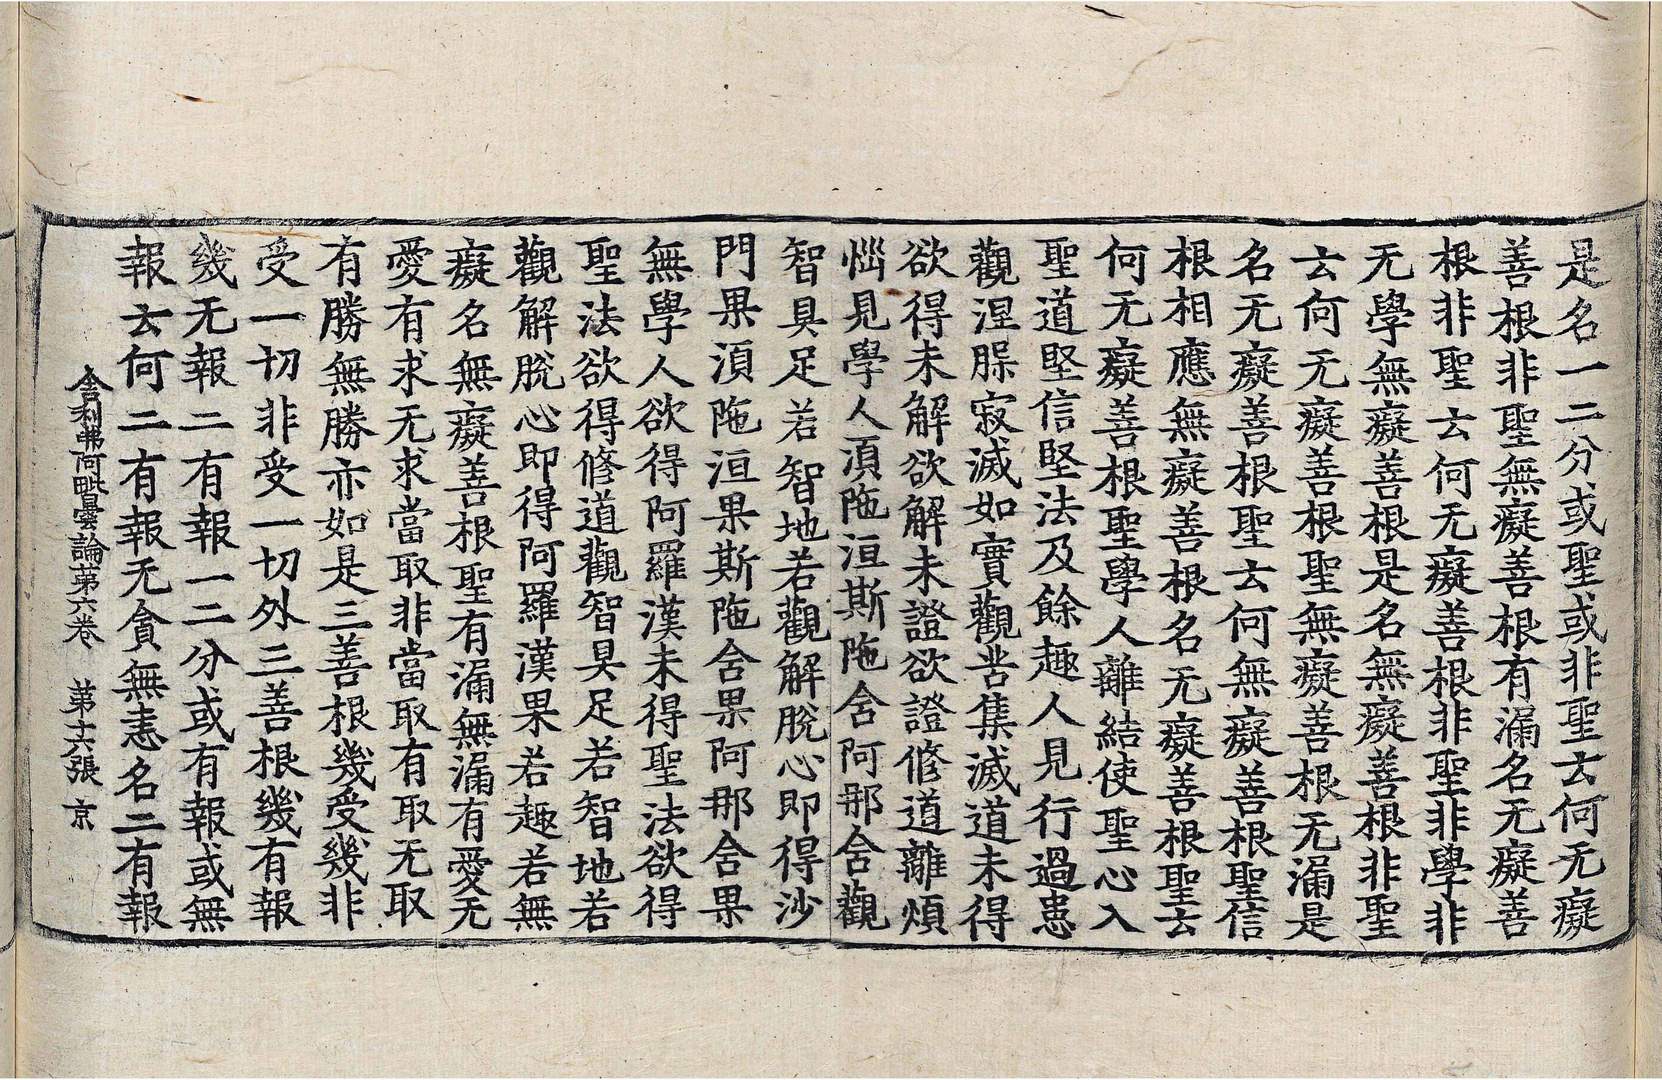 是名一二分或聖或非聖云何无癡
善根非聖無癡善根有漏名无癡善
根非聖云何无癡善根非聖非學非
无學無癡善根是名無癡善根非聖
云何无癡善根聖無癡善根无漏是
名无癡善根聖云何無癡善根聖信
根相應無癡善根名无癡善根聖云
何无癡善根聖學人離結使聖心入
聖道堅信堅法及餘趣人見行過患
觀涅槃寂滅如實觀苦集滅道未得
欲得未解欲解未證欲證修道離煩
惱見學人須陁洹斯陁含阿那含觀
智具足若智地若觀解脫心即得沙
門果須陁洹果斯陁含果阿那含果
無學人欲得阿羅漢未得聖法欲得
聖法欲得修道觀智具足若智地若
觀解脫心即得阿羅漢果若趣若無
癡名無癡善根聖有漏無漏有愛无
愛有求无求當取非當取有取无取
有勝無勝亦如是三善根幾受幾非
受一切非受一切外三善根幾有報
幾无報二有報一二分或有報或無
報云何二有報无貪無恚名二有報
舍利弗阿毗曇論第六卷 第十六張 京